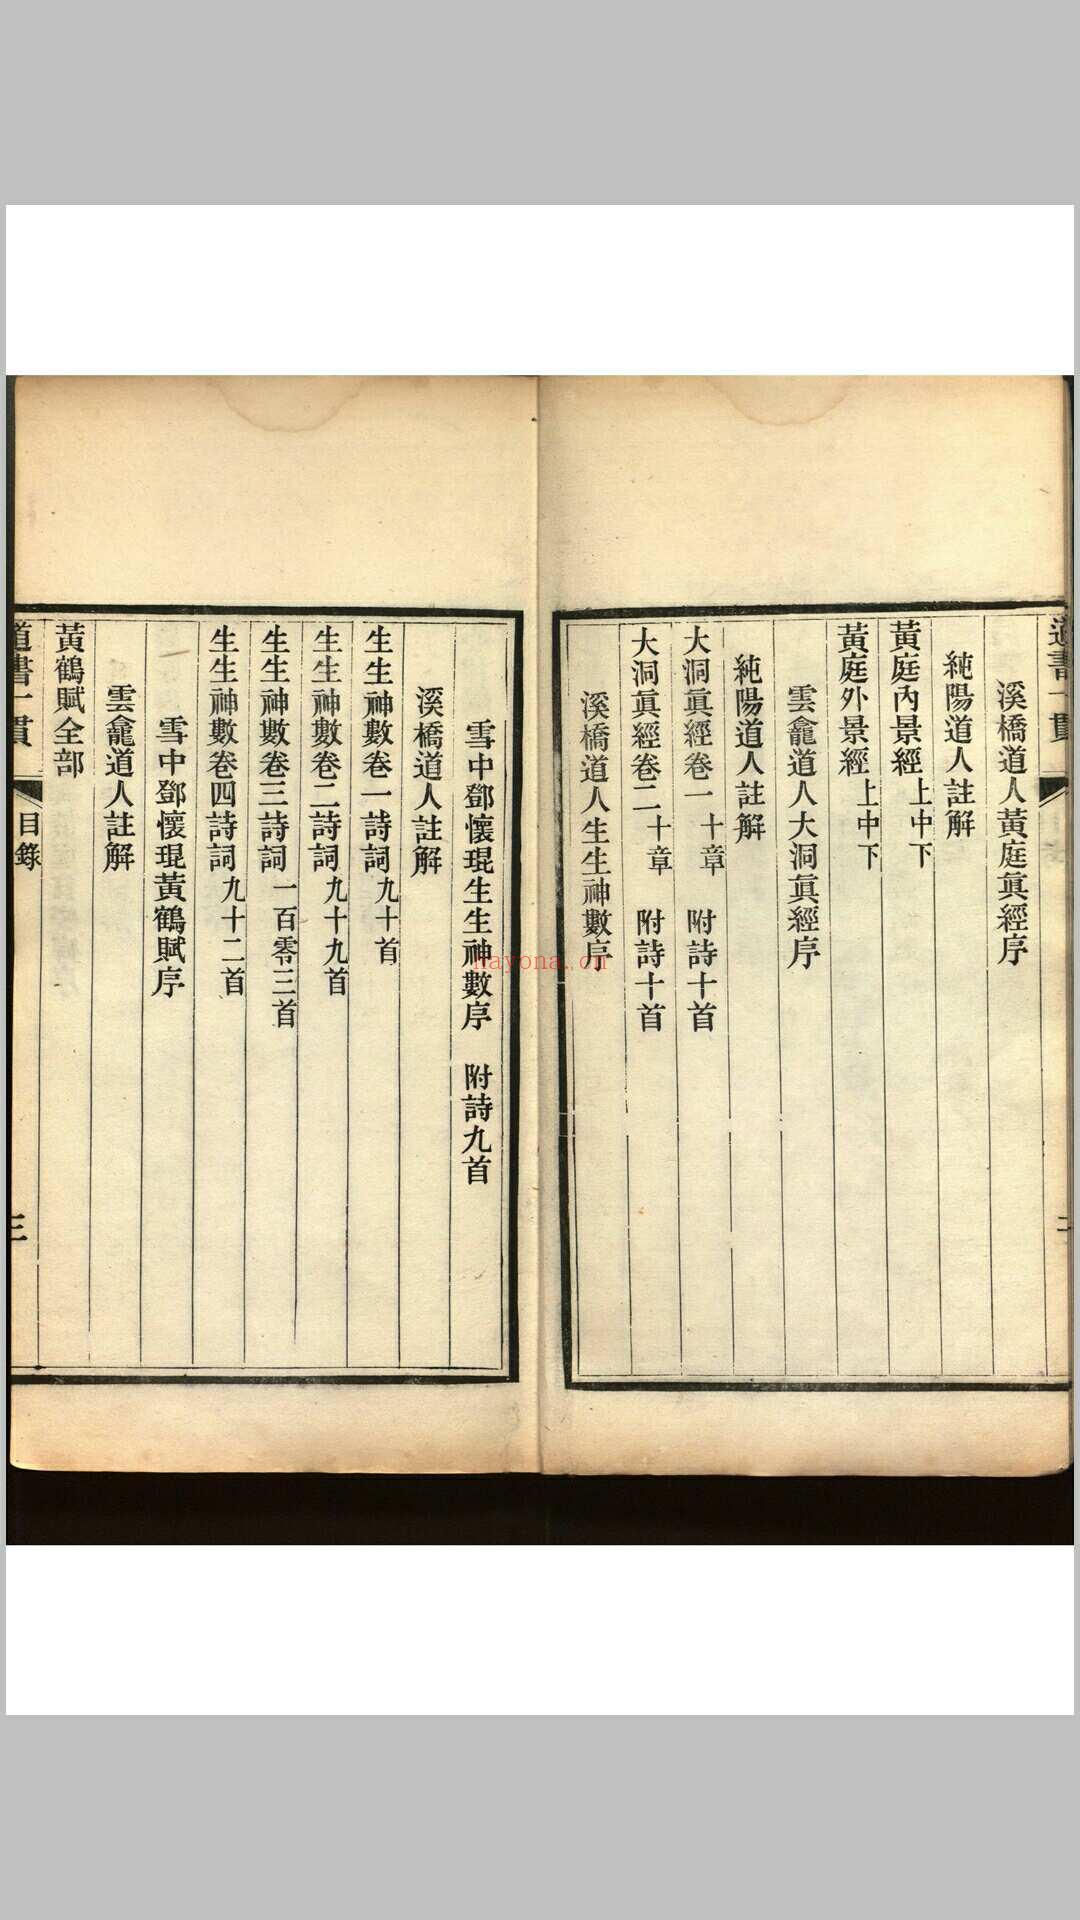 道書一貫
二
溪橋道人黃庭眞經序
純陽道人註解
黃庭內景經上中下
黃庭外景經上中下
雲龕道人大洞眞經序
純陽道人註解
大洞眞經卷一十章 附詩十首
大洞眞經卷二十章 附詩十首
溪橋道人生生神數序
雪中鄧懷琨生生神數序 附詩九首
溪橋道人註解
生生神數卷一詩詞九十首
生生神數卷二詩詞九十九首
生生神數卷三詩詞一百零三首
生生神數卷四詩詞九十二首
雪中鄧懷琨黃鶴賦序
雲龕道人註解
黃鶴賦全部
道書一貫 目錄 三
nayona.cn